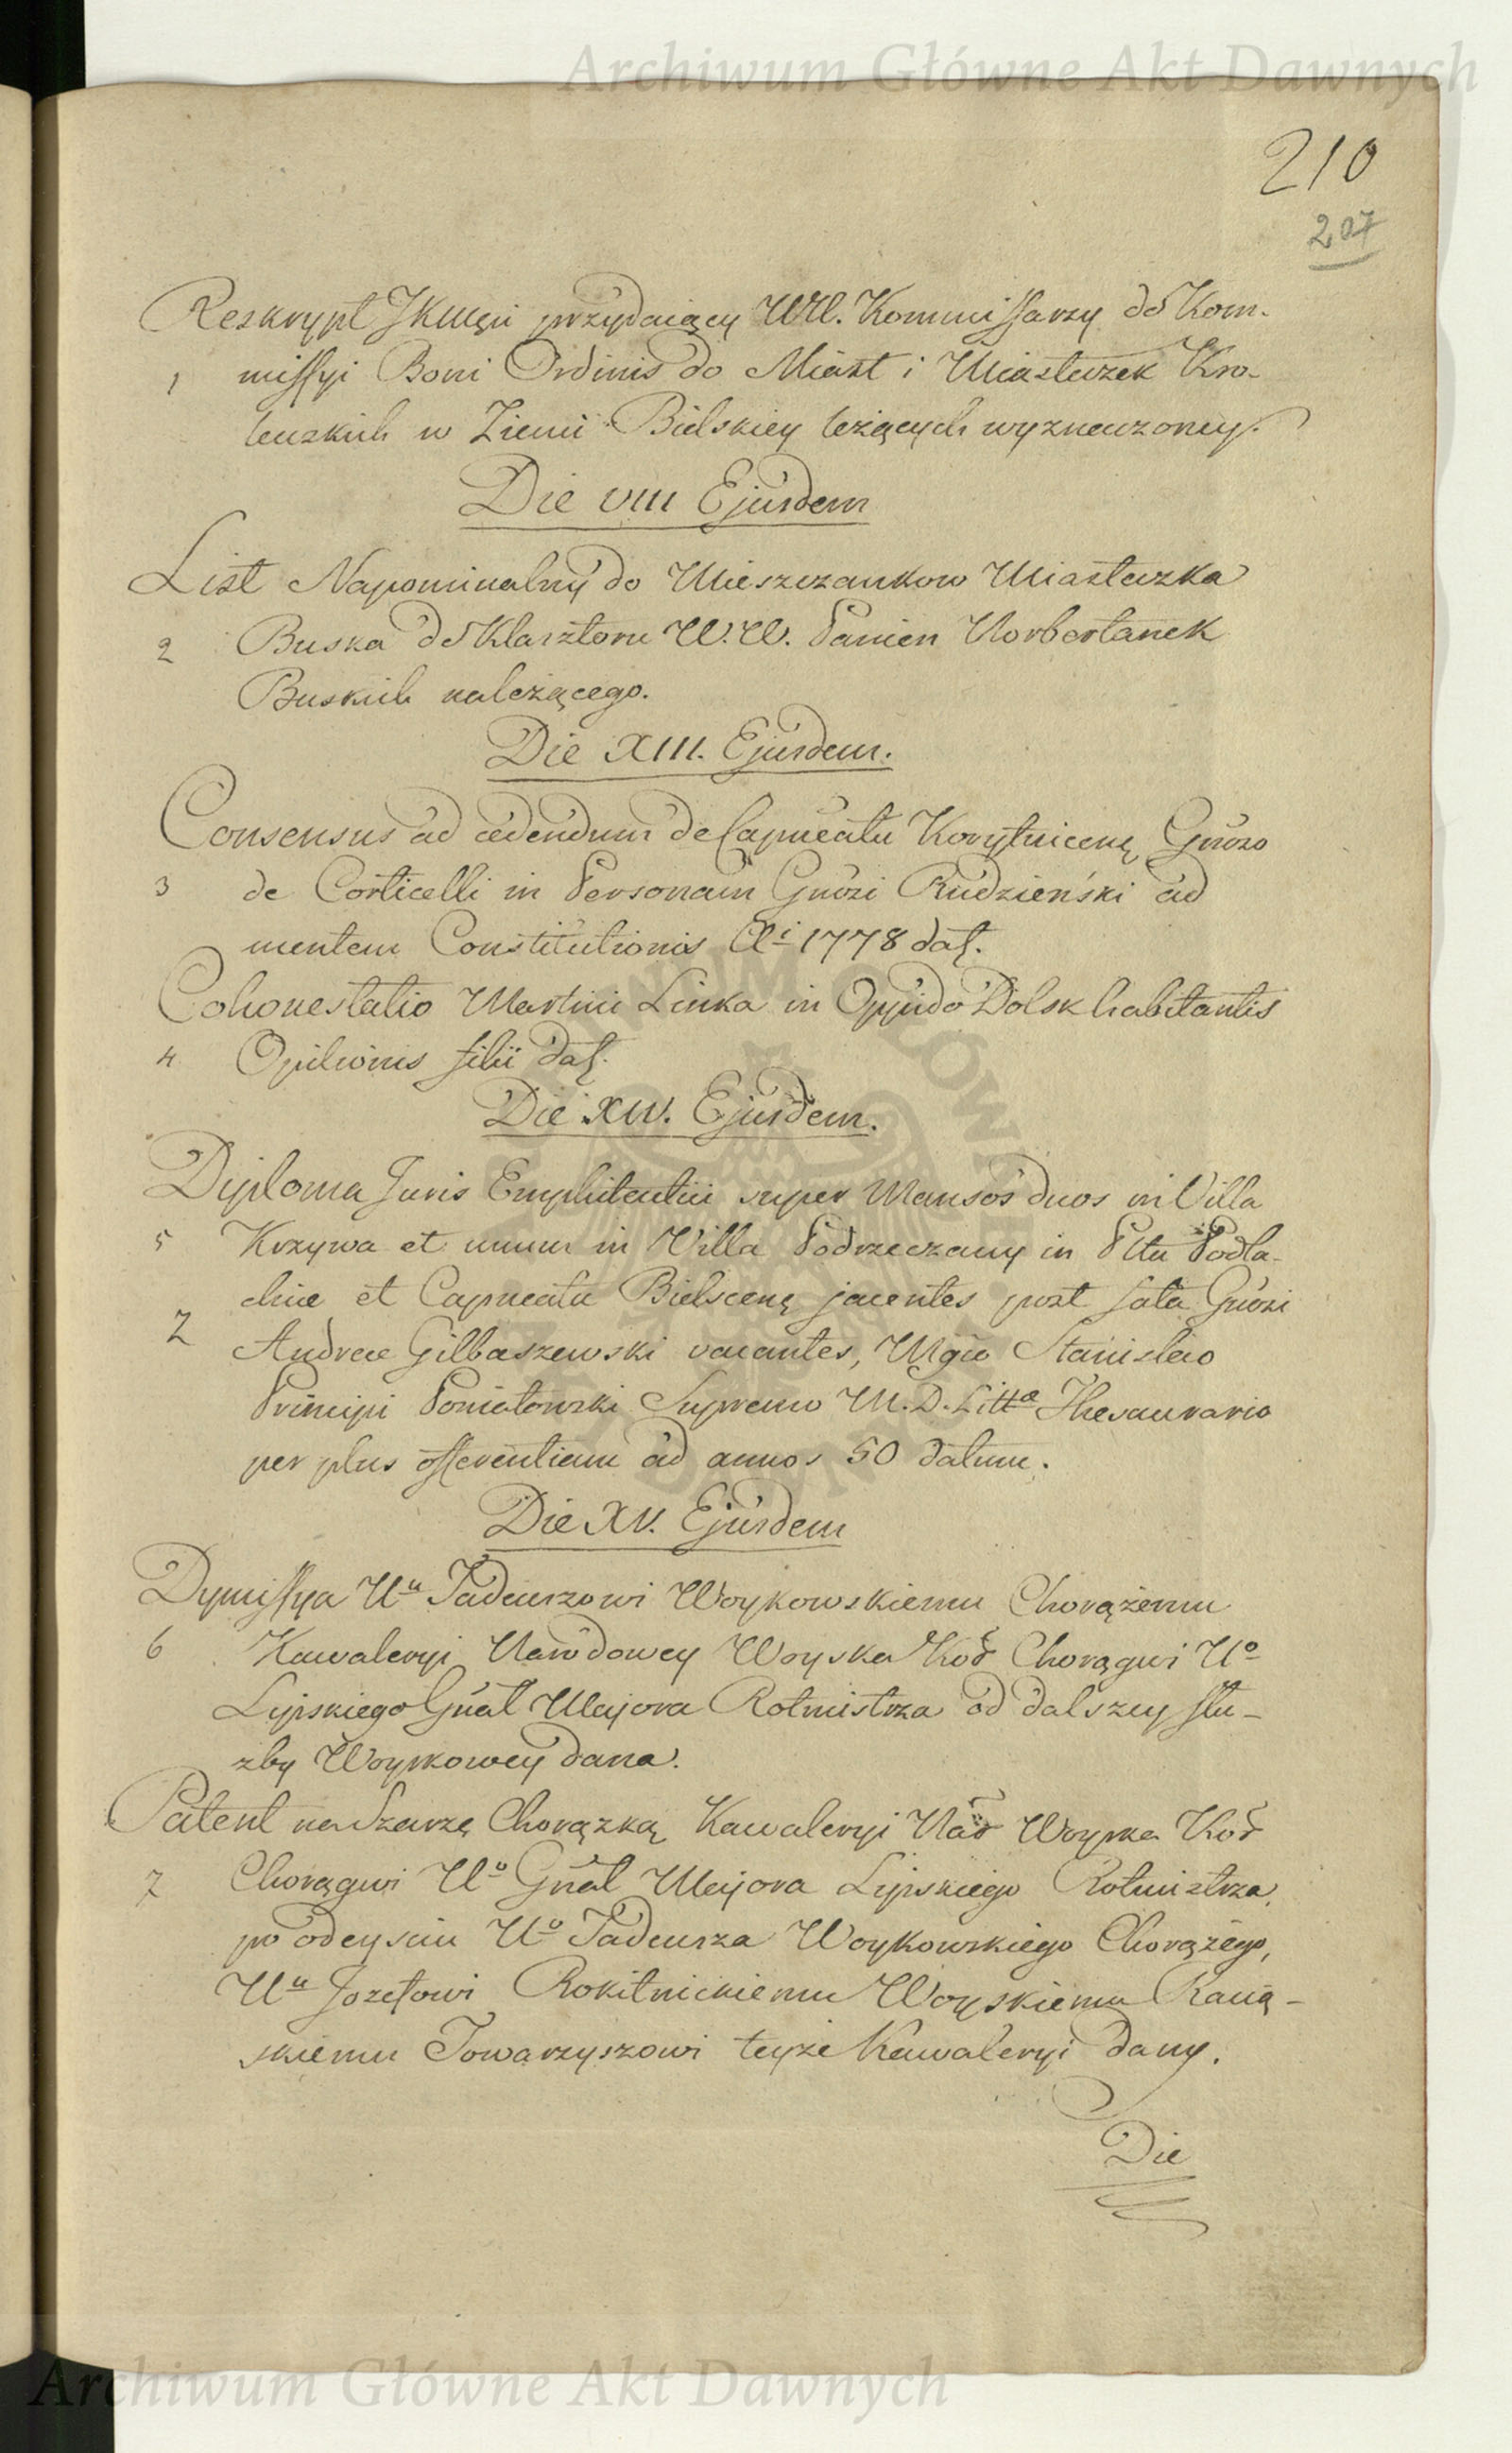 Archiwum Główne Akt Dawnych
210
207
Reskrypt JKMci przydaiący WW. Kommissarzy do Kom-
1 missyi Boni Ordinis do Miast i Miasteczek Kro-
lewskich w Ziemi Bielskiey leżących wyznaczoney.
Die VIII Ejusdem
List Napominalny do Mieszczankow Miasteczka
2 Buska do Klasztoru W.W. Panien Norbertanek
Buskich należącego.
Die XIII. Ejusdem.
Consensus ad cedendum de Capneatu Korytnicenę Gnoso
3 de Corticelli in Personam Gnosi Rudzieński ad
mentem Constitutionis Ai 1778 dat.
Cohonestatio Martini Linka in Oppido Dolsk habitantis
4 Opilionis filii dat.
Die XIV. Ejusdem.
Diploma Juris Emphiteutici super Mansos duos in Villa
5 Krzywa et unum in Villa Podrzeczany in Pltu Podla-
chiae et Capneatu Bielscenę jacentes post fata Gnosi
Z Andreae Gilbaszewski vacantes, Mgco Stanislao
Principi Poniatowski Supremo M.D.Littæ Thesaurario
per plus offerentiam ad annos 50 datum.
Die XV. Ejusdem
Dymissya Uu Tadeuszowi Woykowskiemu Chorążemu
6 Kawaleryi Narodowey Woyska Kor Chorągwi Uo
Lipskiego Gnał Majora Rotmistrza od dalszey słu-
zby Woyskowey dana.
Patent na Szarzę Chorązką Kawaleryi Nar Woyska Kor
7 Chorągwi Uo Gnał Majora Lipskiego Rotmistrza,
po odeysciu Uo Tadeusza Woykowskiego Chorążego,
Uu Jozefowi Rokitnickiemu Woyskiemu Rawą-
skiemu Towarzyszowi teyże Kawaleryi dany.
Die
Archiwum Główne Akt Dawnych